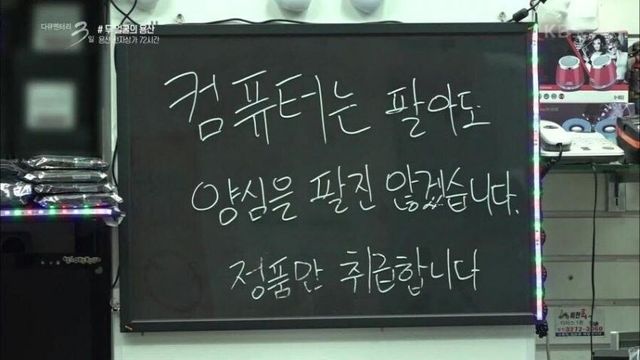 다큐멘터리
3일
# 두 얼굴의 용산
용산 전자상가 72시간
KBS
컴퓨터는 팔아도
양심을 팔진 않겠습니다.
정품만 취급합니다